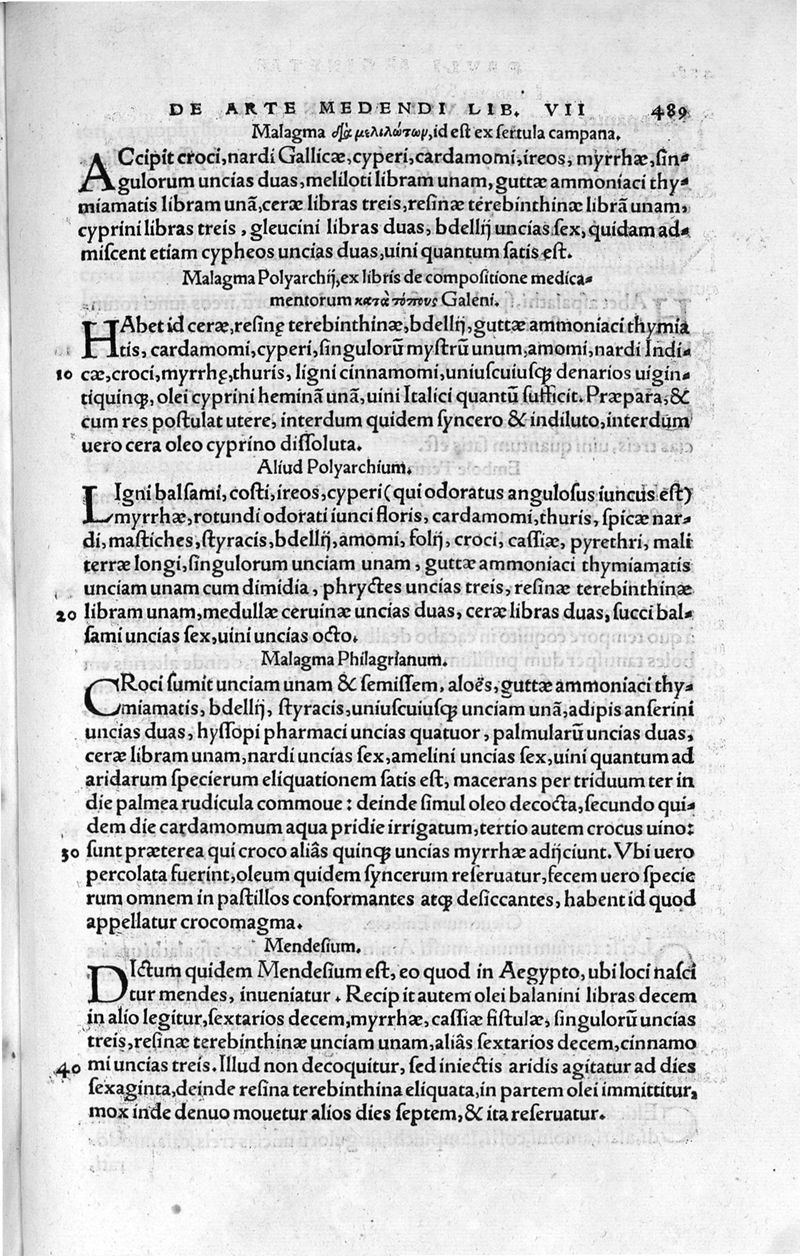 DE ARTE MEDENDI LIB. VII 489
Malagma διὰ μελιλώτων, id est ex sertula campana.
ACcipit croci, nardi Gallicæ, cyperi, cardamomi, ireos, myrrhæ, sin-
gulorum uncias duas, meliloti libram unam, guttæ ammoniaci thy-
miamatis libram unā, ceræ libras treis, resinæ terebinthinæ librā unam,
cyprini libras treis, gleucini libras duas, bdellij uncias sex, quidam ad-
miscent etiam cypheos uncias duas, uini quantum satis est.
Malagma Polyarchij, ex libris de compositione medica-
mentorum κατὰ τόπους Galeni.
HAbet id ceræ, resinę terebinthinæ, bdellij, guttæ ammoniaci thymia
tis, cardamomi, cyperi, singulorū mystrū unum, amomi, nardi Indi-
10 cæ, croci, myrrhę, thuris, ligni cinnamomi, uniuscuiusq; denarios uigin-
tiquinq;, olei cyprini heminā unā, uini Italici quantū sufficit. Præpara, &
cum res postulat utere, interdum quidem syncero & indiluto, interdum
uero cera oleo cyprino dissoluta.
Aliud Polyarchium.
LIgni balsami, costi, ireos, cyperi (qui odoratus angulosus iuncus est)
myrrhæ, rotundi odorati iunci floris, cardamomi, thuris, spicæ nar-
di, mastiches, styracis, bdellij, amomi, folij, croci, cassiæ, pyrethri, mali
terræ longi, singulorum unciam unam, guttæ ammoniaci thymiamatis
unciam unam cum dimidia, phryctes uncias treis, resinæ terebinthinæ
20 libram unam, medullæ ceruinæ uncias duas, ceræ libras duas, succi bal-
sami uncias sex, uini uncias octo.
Malagma Philagrianum.
CRoci sumit unciam unam & semissem, aloës, guttæ ammoniaci thy-
miamatis, bdellij, styracis, uniuscuiusq; unciam unā, adipis anserini
uncias duas, hyssopi pharmaci uncias quatuor, palmularū uncias duas,
ceræ libram unam, nardi uncias sex, amelini uncias sex, uini quantum ad
aridarum specierum eliquationem satis est, macerans per triduum ter in
die palmea rudicula commoue: deinde simul oleo decocta, secundo qui-
dem die cardamomum aqua pridie irrigatum, tertio autem crocus uino:
30 sunt præterea qui croco aliâs quinq; uncias myrrhæ adijciunt. Vbi uero
percolata fuerint, oleum quidem syncerum reseruatur, fecem uero specie
rum omnem in pastillos conformantes atq; desiccantes, habent id quod
appellatur crocomagma.
Mendesium.
DIctum quidem Mendesium est, eo quod in Aegypto, ubi loci nasci
tur mendes, inueniatur. Recipit autem olei balanini libras decem
in alio legitur, sextarios decem, myrrhæ, cassiæ fistulæ, singulorū uncias
treis, resinæ terebinthinæ unciam unam, aliâs sextarios decem, cinnamo
40 mi uncias treis. Illud non decoquitur, sed iniectis aridis agitatur ad dies
sexaginta, deinde resina terebinthina eliquata, in partem olei immittitur,
mox inde denuo mouetur alios dies septem, & ita reseruatur.